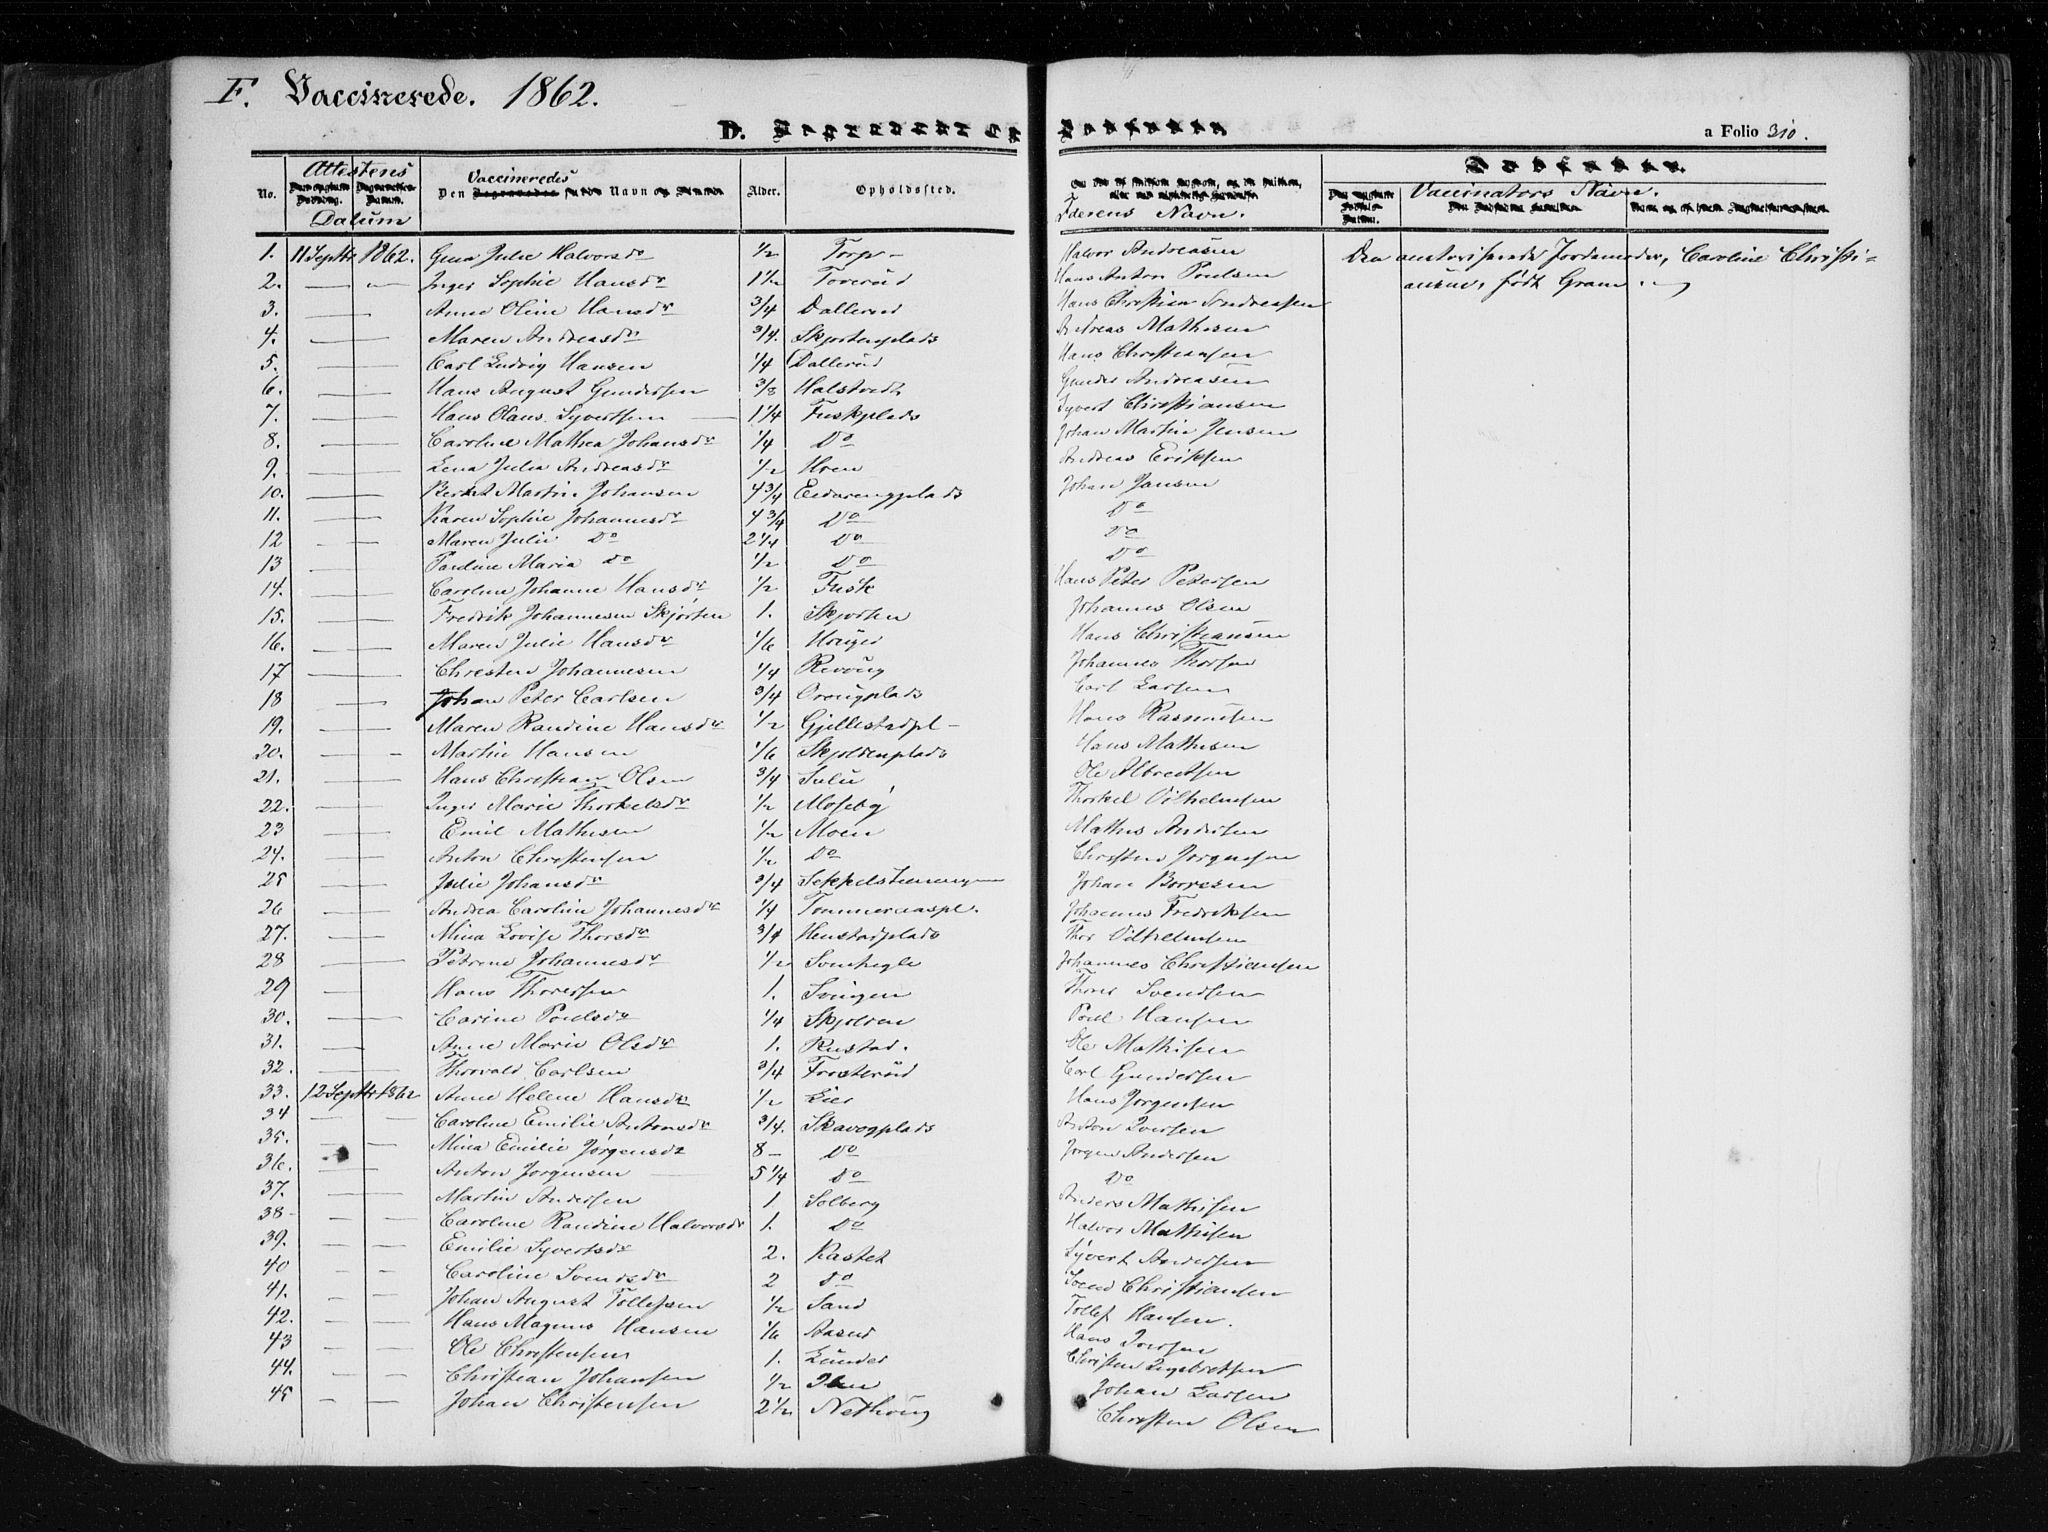 F. Vaccinerede. 1862.
D.
a Folio 310.
No. Attestens Datum Den Vaccineredes Navn Alder. Opholdssted. Faderens Navn. Vaccinators Navn.
1. 11 Septbr 1862. Gina Julie Halvorsdr 1/2 Torp Halvor Andreasen Den autoriserede Jordemoder, Caroline Christi-
2. — — Inger Sophie Hansdr 1 1/2 Toverud Hans Anton Poulsen ansen, født Gram.
3. — Anne Oline Hansdr 3/4 Dallerud Hans Christian Andreassen
4. — Maren Andreasdr 3/4. Skjortenplads Andreas Mathisen
5. — Carl Ludvig Hansen 1/4 Dallerud Hans Christiansen
6. — Hans August Gundersen 3/8 Halstvedt Gunder Andreasen
7. — Hans Olaus Syvertsen — 1 1/4 Fuskplads Syvert Christiansen
8. — Caroline Mathea Johansdr 1/4 Do Johan Martin Jensen
9. — Lena Julia Andreasdr 1/2 Hoen Andreas Eriksen
10. — Martin Johansen 4 3/4 Johan Jansen
11. — Karen Sophie Johannesdr 4 3/4 Do Do
12 — Maren Julie Do 2 1/4 Do Do
13 — Pauline Maria Do 1/2 Do Do
14. — Caroline Johanne Hansdr 1/2 Fusk Hans Peter Petersen
15. — Fredrik Johannesen Skjorten 1. Skjorten Johannes Olsen
16. — Maren Julie Hansdr 1/6 Hans Christiansen
17 — Christen Johannesen 1/4 Johannes Thorsen
18 — Johan Peter Carlsen 3/4 Carl Larsen
19. — Maren Randine Hansdr 1/2 Gjellestadpl — Hans Rasmusen
20. — Martin Hansen 1/6 Skjoldenplads Hans Mathisen
21. — Hans Christian Olsen 3/4 Ole Albretsen
22. — Inger Marie Thorkelsdr 1/2 Moseby Thorkel Vilhelmsen
23 — Emil Mathisen 1/2 Moen Mathis Andersen
24. — Anton Christensen 1/2 Do Christen Jørgensen
25 — Julie Johansdr 3/4 Johan Borresen
26 — Andrea Caroline Johannesdr 1/4 Tommeraaspl. Johannes Fredriksen
27. — Mina Lovise Thorsdr 3/4 Henstadplads Thor Vilhelmsen
28 — Petrine Johannesdr 1/2 Johannes Christiansen
29 — Hans Thoresen 1. Svingen Thore Svendsen
30. — Carine Poulsdr 1/4 Skjolden Poul Hansen
31. — Anne Marie Olsdr 1. Rustad. Ole Mathisen
32. — Thorvald Carlsen 3/4 Frosterud Carl Gundersen
33. 12 Septbr 1862 Anne Helene Hansdr 1/2 Lier Hans Jørgensen
34 — Caroline Emilie Antonsdr 3/4. Skavogplads Anton Iversen
35. — Mina Emilie Jørgensdr 8 — Do Jørgen Andersen
36. — Anton Jørgensen — 5 1/4 Do Do
37. — Martin Andersen 1 Solberg Anders Mathisen
38 — Caroline Randine Halvorsdr 1. Do Halvor Mathisen
39. — Emilie Syvertsdr 2. Kastet Syvert Andersen
40 — Caroline Svendsdr 2 Do Svend Christiansen
41. — Johan August Tollefsen 1/2 Sand Tollef Hansen.
42. — Hans Magnus Hansen 1/6 Aasrud Hans Iversen
43 — Ole Christensen 1. Lunder Christen Ingebretsen
44. — Christian Johansen 1/2 Johan Larsen
45 — Johan Christensen 2 1/2 Christen Olsen